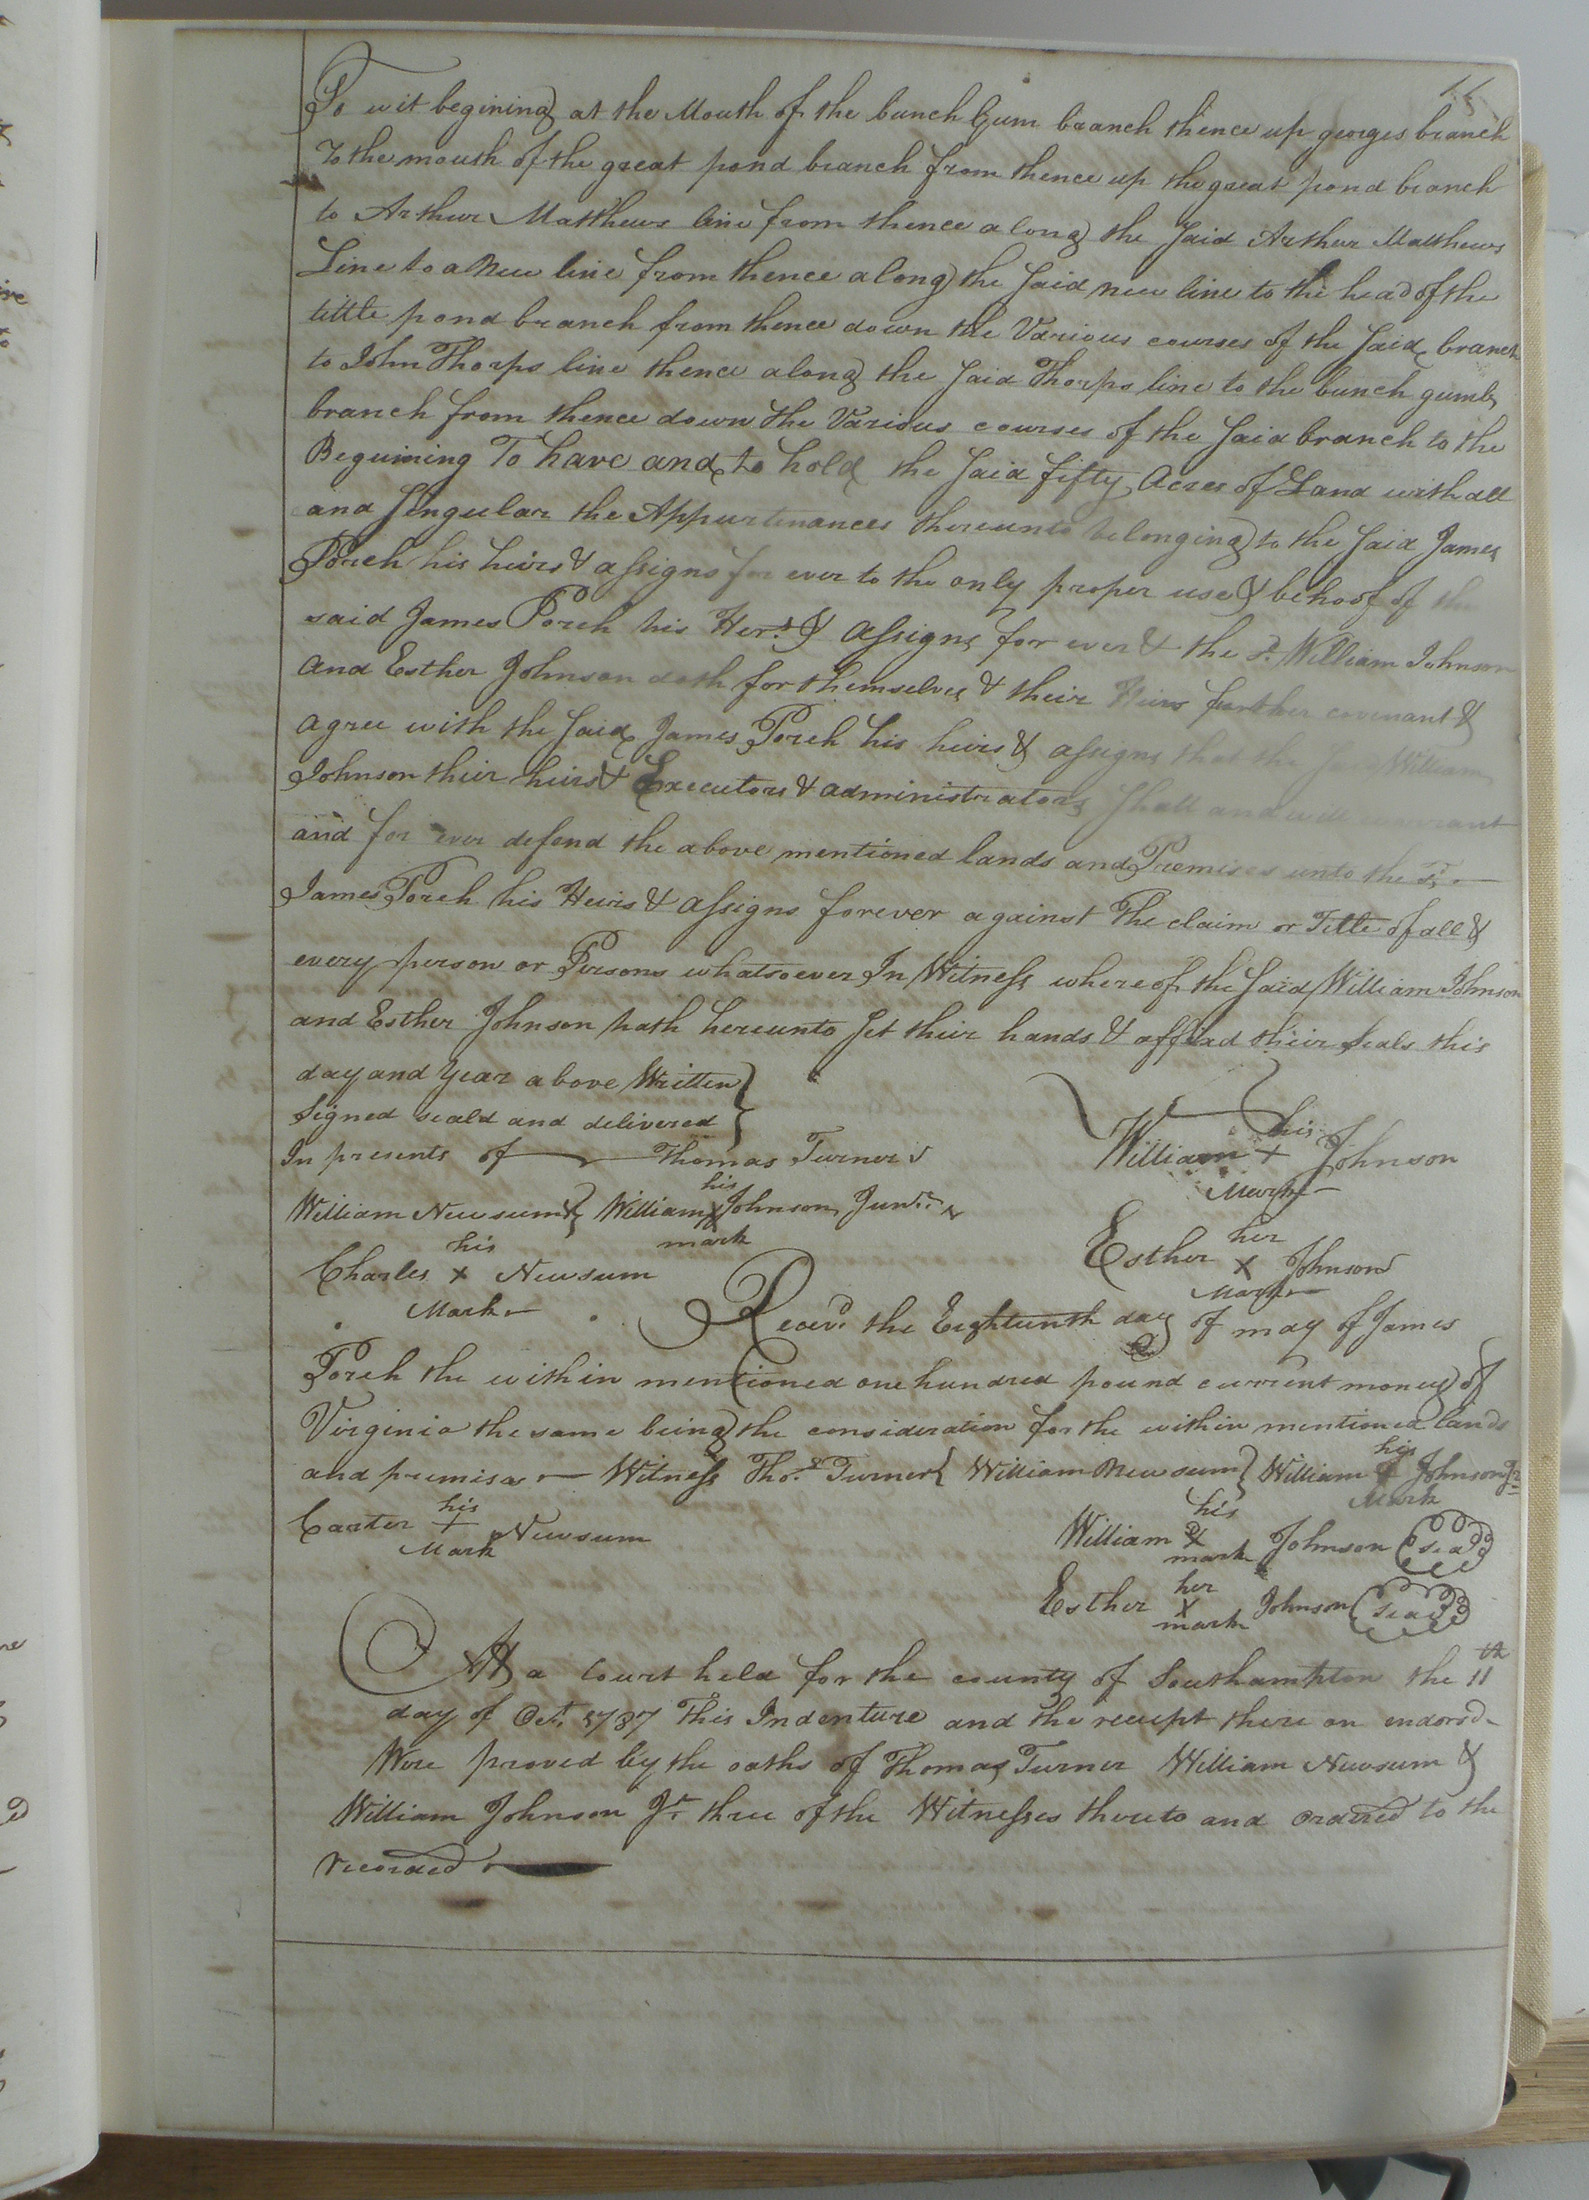 To wit begining at the Mouth of the bunch Gum branch thence up georges branch
To the mouth of the great pond branch from thence up the great pond branch
to Arthur Matthews line from thence along the Said Arthur Matthews
Line to a New line from thence along the Said new line to the head of the
little pond branch from thence down the Various courses of the Said branch
to John Thorps line thence along the Said Thorps line to the bunch gumb
branch from thence down the Various courses of the Said branch to the
Beguining To have and to hold the Said fifty Acres of Land with all
and Singular the Appurtenances thereunto belonging to the Said James
Porch his heirs & assigns for ever to the only proper use & behoof of the
said James Porch his Hers & assigns for ever & the sd. William Johnson
and Esther Johnson doth for themselves & their Heirs further covenant &
agree with the Said James Porch his heirs & assigns that the William
Johnson their heirs & Executors & administrators Shall and will warrant
and for ever defend the above mentioned lands and Premises unto the sd.
James Porch his Heirs & assigns forever against The claim or Title of all &
every person or Persons whatsoever In Witness whereof the Said William Johnson
and Esther Johnson hath hereunto Set their hands & affixd their Seals this
day and Year above Written
Signed seald and delivered
In presents of Thomas Turner
William his + Johnson
Mark
William Newsum William his X Johnson Junr.
mark
Esther her X Johnson
Mark
Charles his X Newsum
Mark
Receivd. the Eighteenth day of may of James
Porch the within mentioned one hundred pound current money of
Virginia the same being the consideration for the within mentioned lands
and premises Witness Thos. Turner William Newsum William his Johnson Jr
Mark
Carter his + Newsum
Mark
William his X mark Johnson Seal
Esther her X mark Johnson Seal
At a Court held for the county of Southampton the 11th
day of Oct. 1787 This Indenture and the receipt there on endorsd
Were proved by the oaths of Thomas Turner William Newsum &
William Johnson Jr. three of the Witnesses thereto and ordered to the
recorded